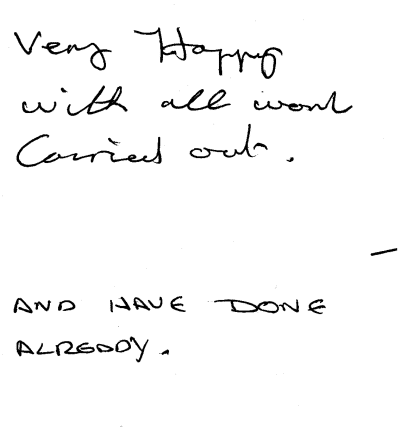 Very Happy
with all work
Carried out.
AND HAVE DONE
ALREADY.